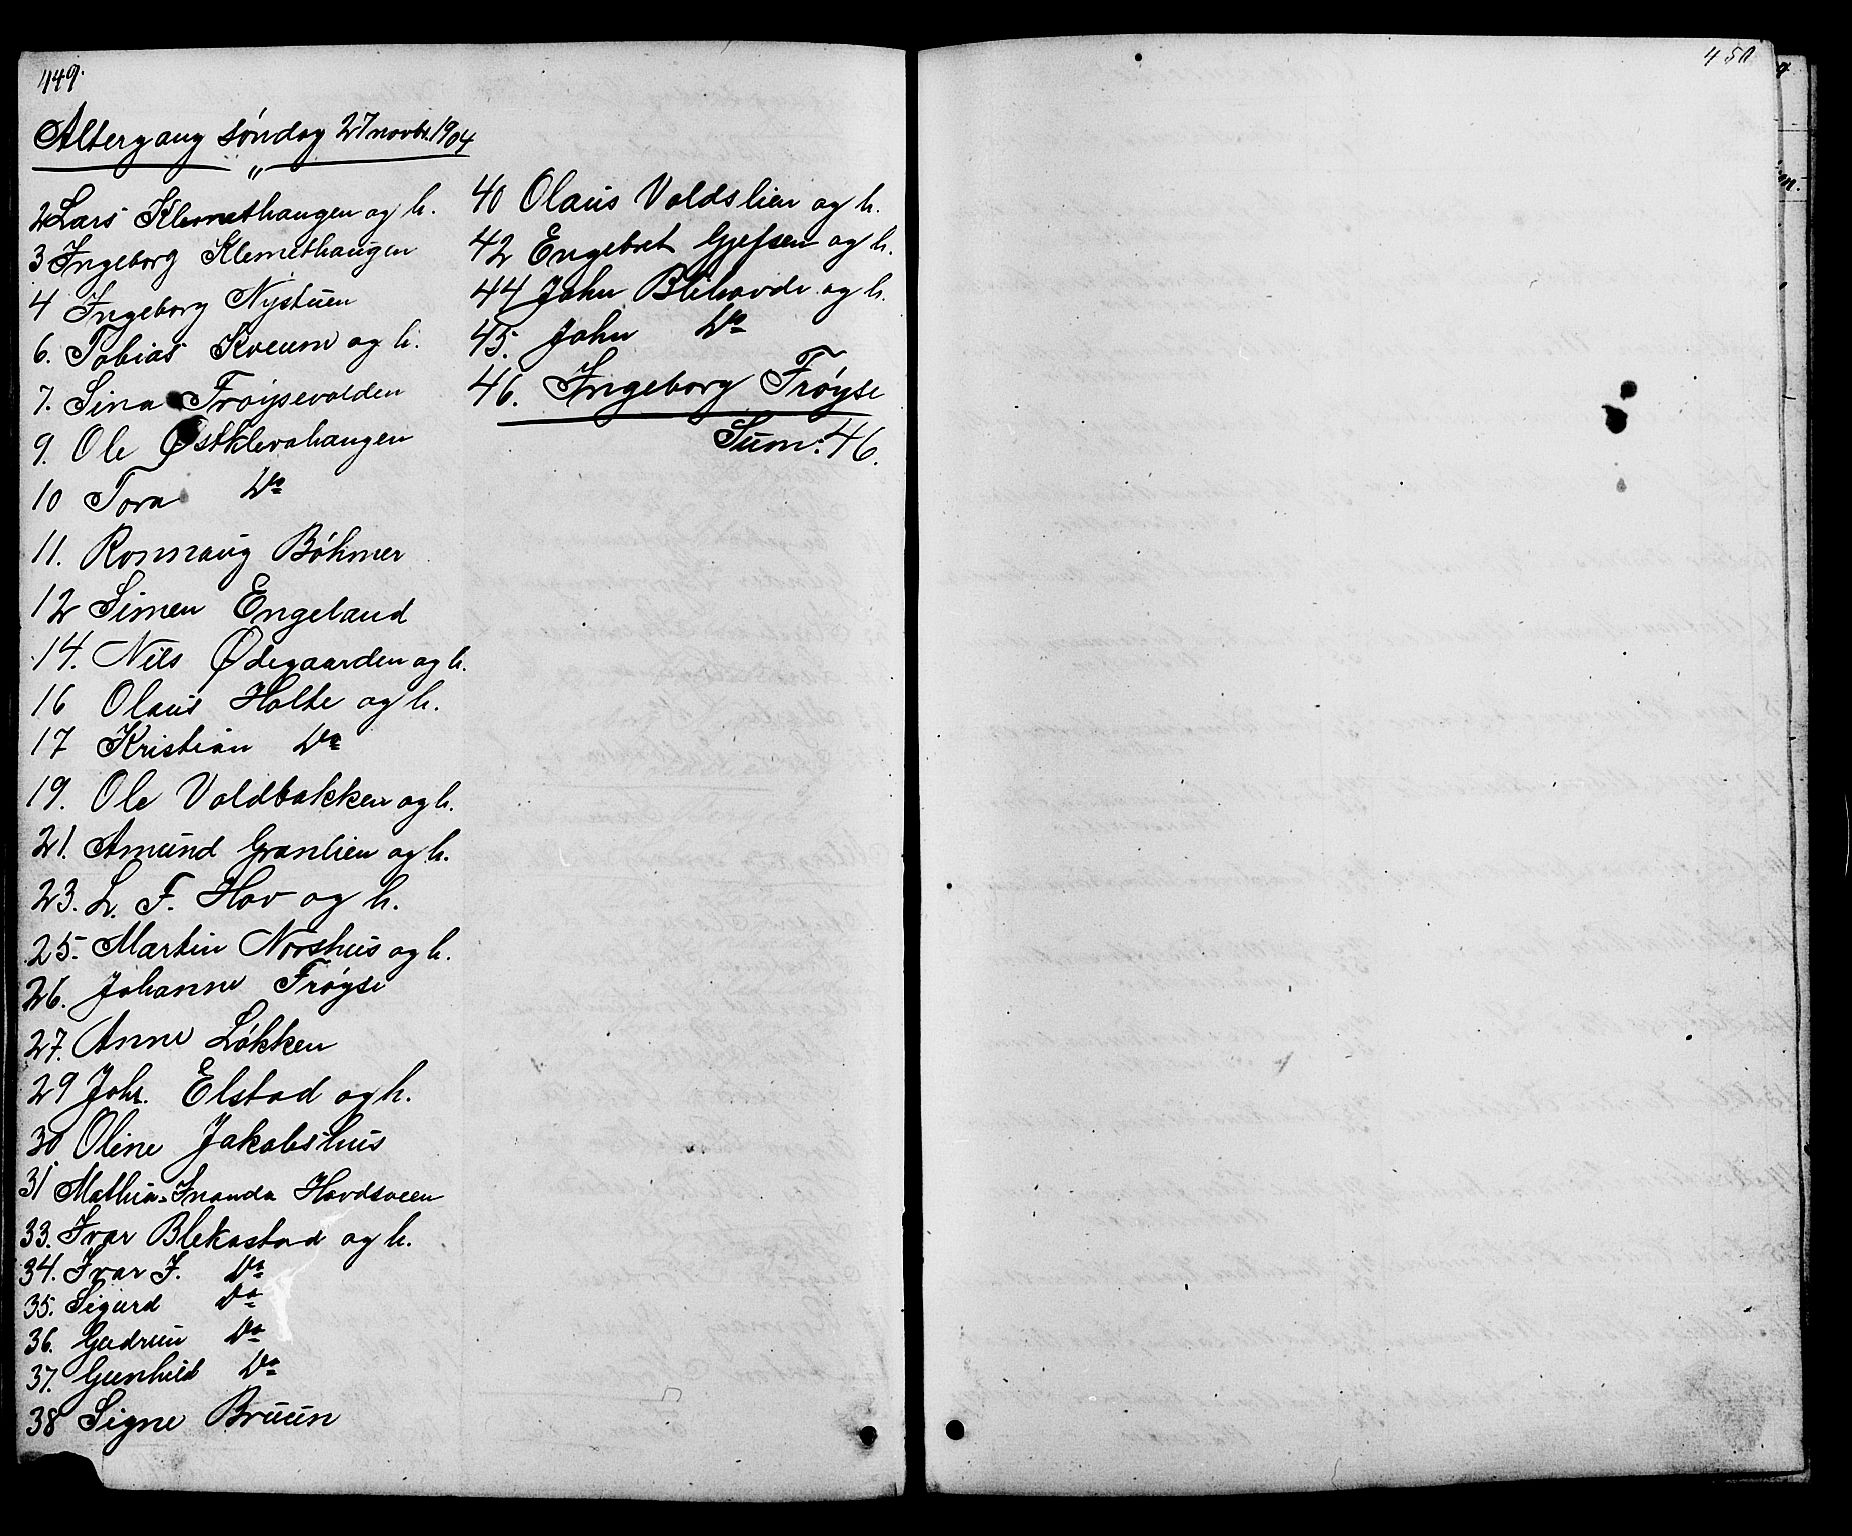 449.
Altergang søndag 27 novbr. 1904
2 Lars Klemethaugen og h.
3 Ingeborg Klemethaugen
4 Ingeborg Nystuen
6. Tobias Kveum og h.
7. Sina Frøysevolden
9. Ole Østklevahaugen
10 Tora Do
11. Ronnaug Bóhmer
12 Simen Engeland
14. Nils Ødegaarden og h.
16 Olaus Holte og h.
17 Kristian Do
19. Ole Voldbakken og h.
21. Amund Granlien og h.
23. L. F. Hov og h.
25. Martin Norshus og h.
26. Johanne Frøyse
27. Anne Løkken
29 Johs. Elstad og h.
30 Oline Jakobshus
31 Mathea Inanda Hovdsveen
33. Ivar Blekastad og h.
34. Ivar I. Do
35. Sigurd Do
36. Gudrun Do
37. Gunhild Do
38 Signe Bruun
40 Olaus Voldslien og h.
42 Engebret Gjefsen og h.
44 John Blihovde og h.
45. John Do
46. Ingeborg Frøyse
Sum: 46.
450